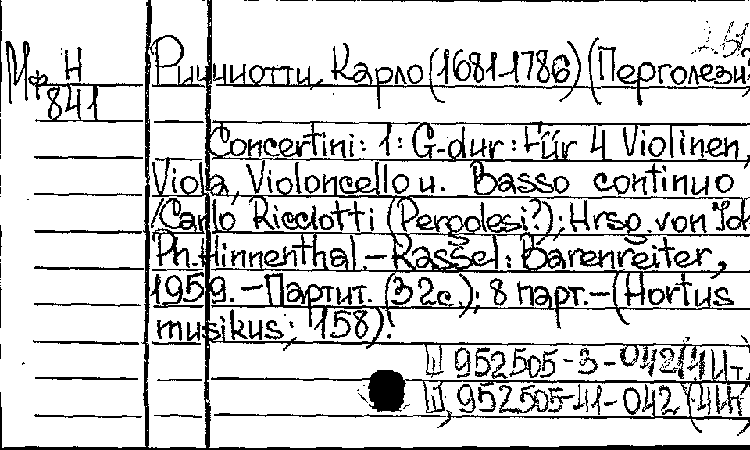 261
Мф Н
841
Риччиотти, Карло (1681-1786) (Перголези,
Concertini: 1: G-dur: Für 4 Violinen,
Viola, Violoncello u. Basso continuo
/Carlo Ricciotti (Pergolesi?); Hrsg. von Joh
Ph. Hinnenthal. – Kassel: Bärenreiter,
1959. – Партит. (32с.); 8 парт. – (Hortus
musikus; 158).
952505-3-042(4Ит,
952505-41-042 (4Ит